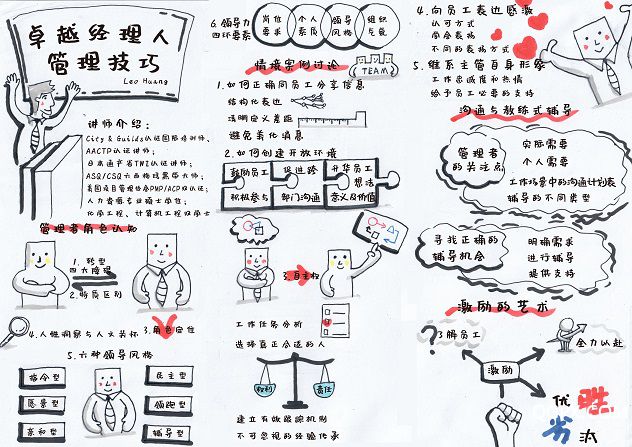 卓越经理人
管理技巧
Leo Huang
讲师介绍：
City & Guilds认证国际培训师、
AACTP认证讲师；
日本通产省TWI认证讲师；
ASQ/CSQ六西格玛黑带大师；
美国项目管理协会PMP/ACP双认证；
人力资源专业硕士学位；
化学工程、计算机工程双学士
管理者角色认知
1. 转型
四大障碍
2. 特质区别
3. 角色定位
4. 人性洞察与人文关怀
5. 六种领导风格
指令型
愿景型
亲和型
民主型
领跑型
辅导型
6. 领导力
四环要素
岗位
要求
个人
素质
领导
风格
组织
气氛
情境案例讨论
TEAM
1. 如何正确同员工分享信息
结构化表达
清晰定义差距
避免柔化消息
2. 如何创建开放环境
鼓励员工
积极参与
促进跨
部门沟通
升华员工
想法
意义及价值
3. 自主权
工作任务分析
选择真正合适的人
权利
责任
建立有效跟踪机制
不可忽视的经验传承
4. 向员工表达感激
认可方式
学会表扬
不同的表扬方式
5. 维系主管自身形象
工作忠诚度和热情
给予员工必要的支持
沟通与教练式辅导
管理者
的关注点
实际需要
个人需要
工作场景中的沟通计划表
辅导的不同类型
寻找正确的
辅导机会
明确需求
进行辅导
提供支持
激励的艺术
?
了解员工
全力以赴
激励
优胜
劣汰